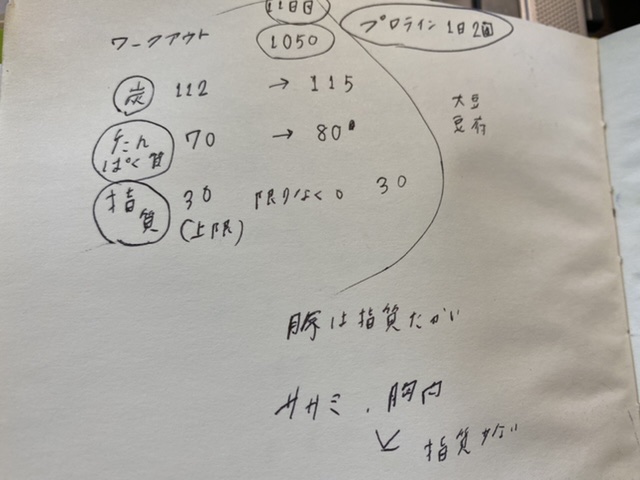 11日目
プロライン1日2回
ワークアウト 1050
炭 112 → 115
たんぱく質 70 → 80
大豆
豆腐
指質 30 限りなく0 30
(上限)
豚は指質たかい
ササミ、胸肉
指質少ない